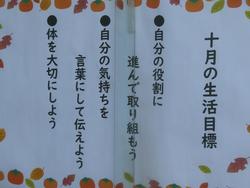 十月の生活目標
●自分の役割に
進んで取り組もう
●自分の気持ちを
言葉にして伝えよう
●体を大切にしよう